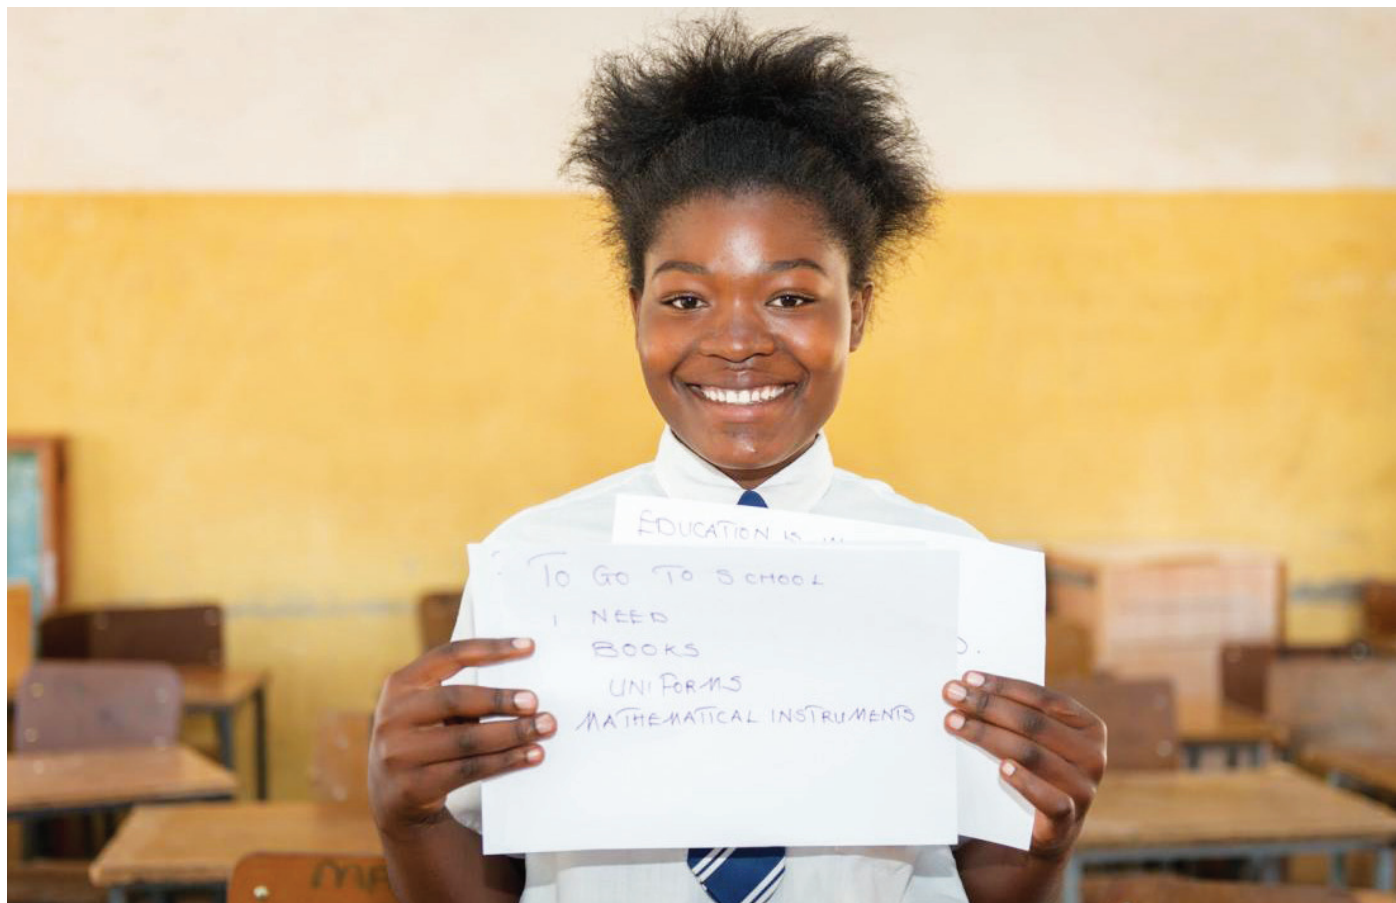 EDUCATION IS
TO GO TO SCHOOL
I NEED
BOOKS
UNIFORMS
MATHEMATICAL INSTRUMENTS